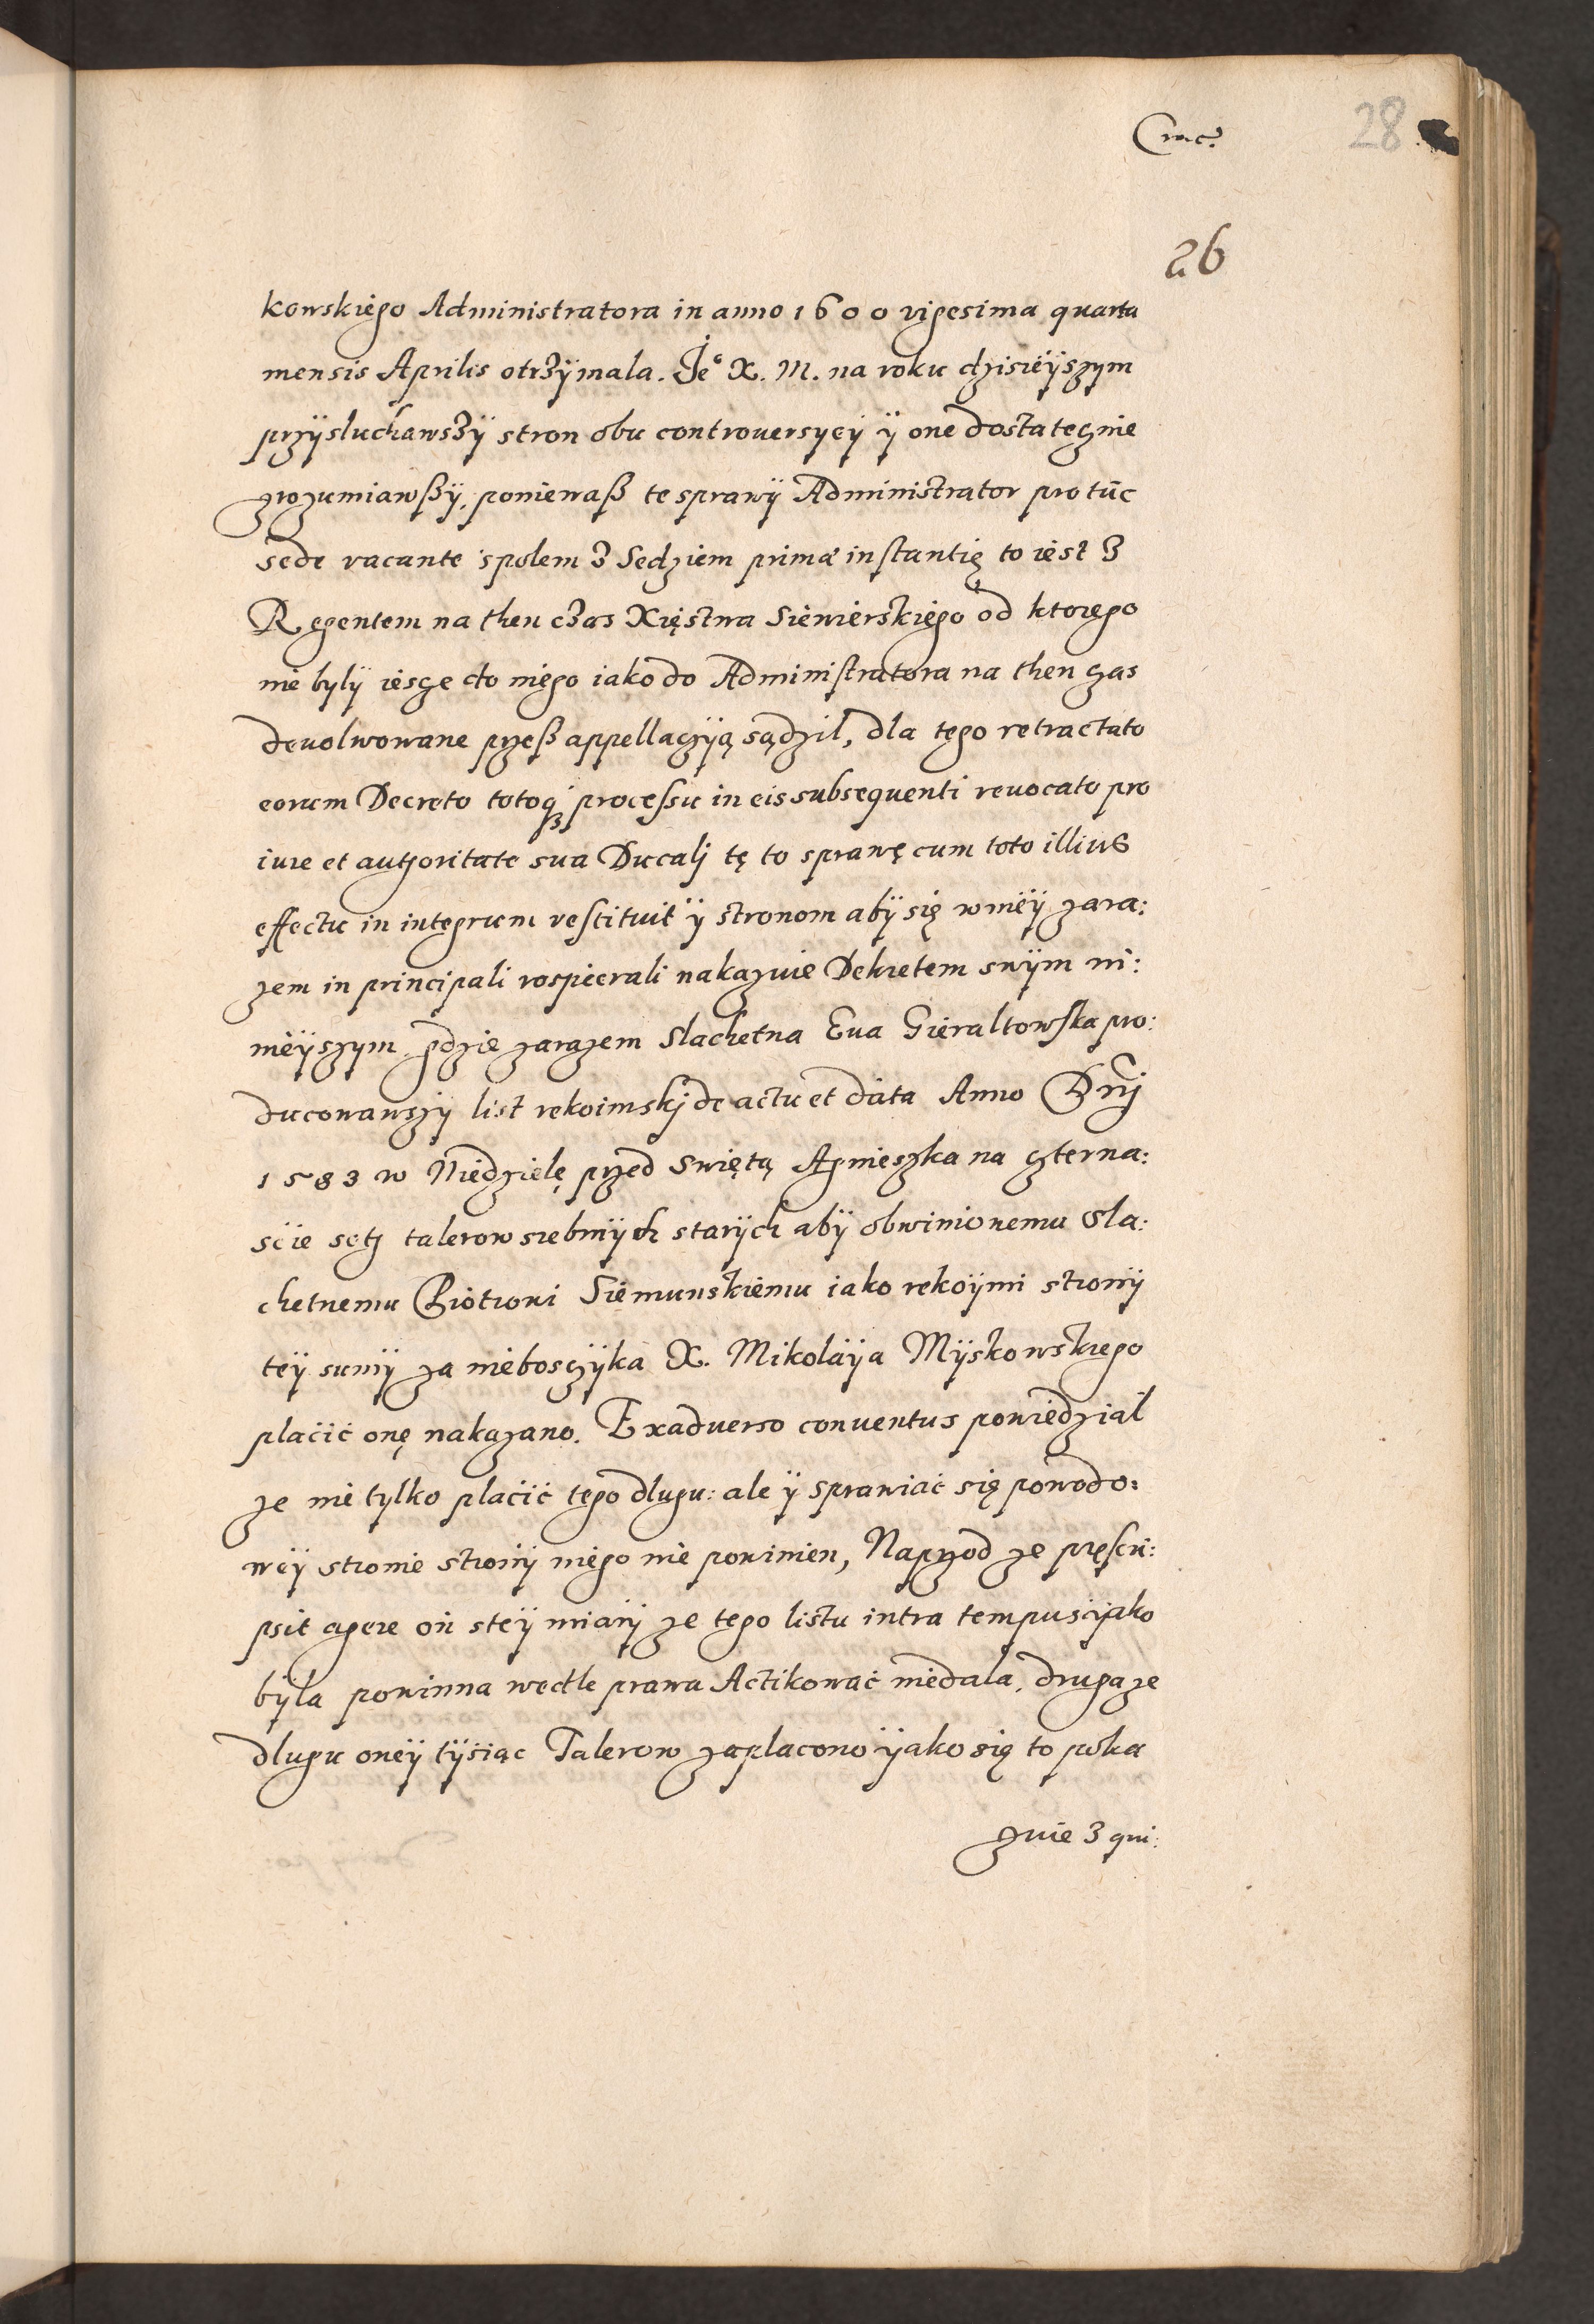 28
26
kowskiego Administratora in anno 1600 vigesima quarta
mensis Aprilis otrzÿmala. Je° X. M. na roku dzisieÿszym
przÿsluchawszÿ stron obu controuersyeÿ ÿ one dostatecznie
zrozumiawßÿ, poniewaß te sprawÿ Administrator pro tūc
sede vacante spolem z Sedziem primæ instantię to iest z
Regentem na then czas Xięstwa Siewierskiego od ktorego
nie bylÿ iescze do niego iako do Administratora na then czas
deuolwowane przeß appellaczÿą sądzil, dla tego retractato
eorum Decreto totoq₃ processu in eis subsequenti reuocato pro
iure et authoritate sua Ducalj tę to sprawę cum toto illius
effectu in integrum restituit ÿ stronom abÿ się wnieÿ zara:
zem in principali rospierali nakazuie Dekretem swÿm ni:
nieÿszym, gdzie zarazem Slachetna Eua Gieraltowska pro:
ducowawszÿ list rekoimskj de actu et data Anno Dn̄j
1583 w Niedzielę przed Swiętą Agnieszka na czterna:
scie setj talerow srebrnÿch starÿch abÿ obwinionemu Sla:
chetnemu Piotrowi Siemunskiemu iako rekoÿmi stronÿ
teÿ sumÿ za nieboszczÿka X. Mikolaÿa Mÿskowskiego
placić onę nakazano. Exaduerso conuentus powiedzial
ze nie tylko placić tego dlugu: ale ÿ sprawiać się powodo:
weÿ stronie stronÿ niego nie powinien, Naprzod ze pręscri:
psit agere oń steÿ miarÿ ze tego listu intra tempus ijako
bÿla powinna wedle prawa Actikować niedala, druga ze
dlugu oneÿ tÿsiąc Talerow zaplacono ÿako się to poka
zuie z qui: